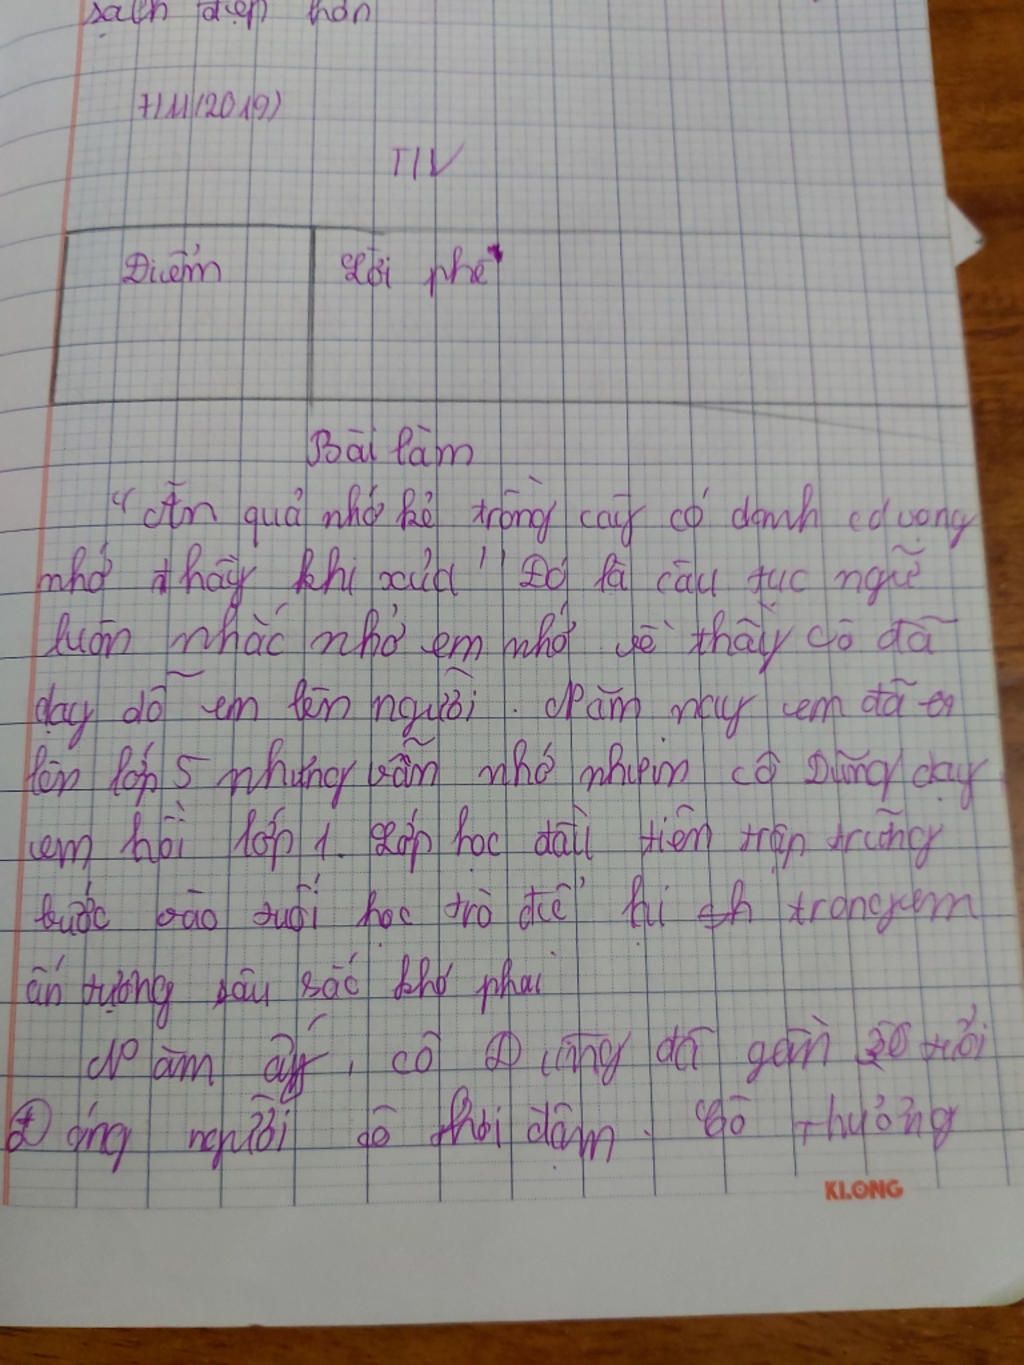 sạch đẹp hơn
7/11(2019)
TLV
Điểm Lời phê
Bài làm
"Ăn quả nhớ kẻ trồng cây có danh có vọng
nhớ thầy khi xưa" Đó là câu tục ngữ
luôn nhắc nhở em nhớ về thầy cô đã
dạy dỗ em lên người. Năm nay em đã
lên lớp 5 nhưng vẫn nhớ cô Dũng dạy
em hồi lớp 1. Lớp học đầu tiên
bước vào tuổi học trò để trong em
ấn tượng sâu sắc khó phai
Năm ấy, cô Dũng đã gần 30 tuổi
Dáng người cô đậm. Cô thường
KLONG